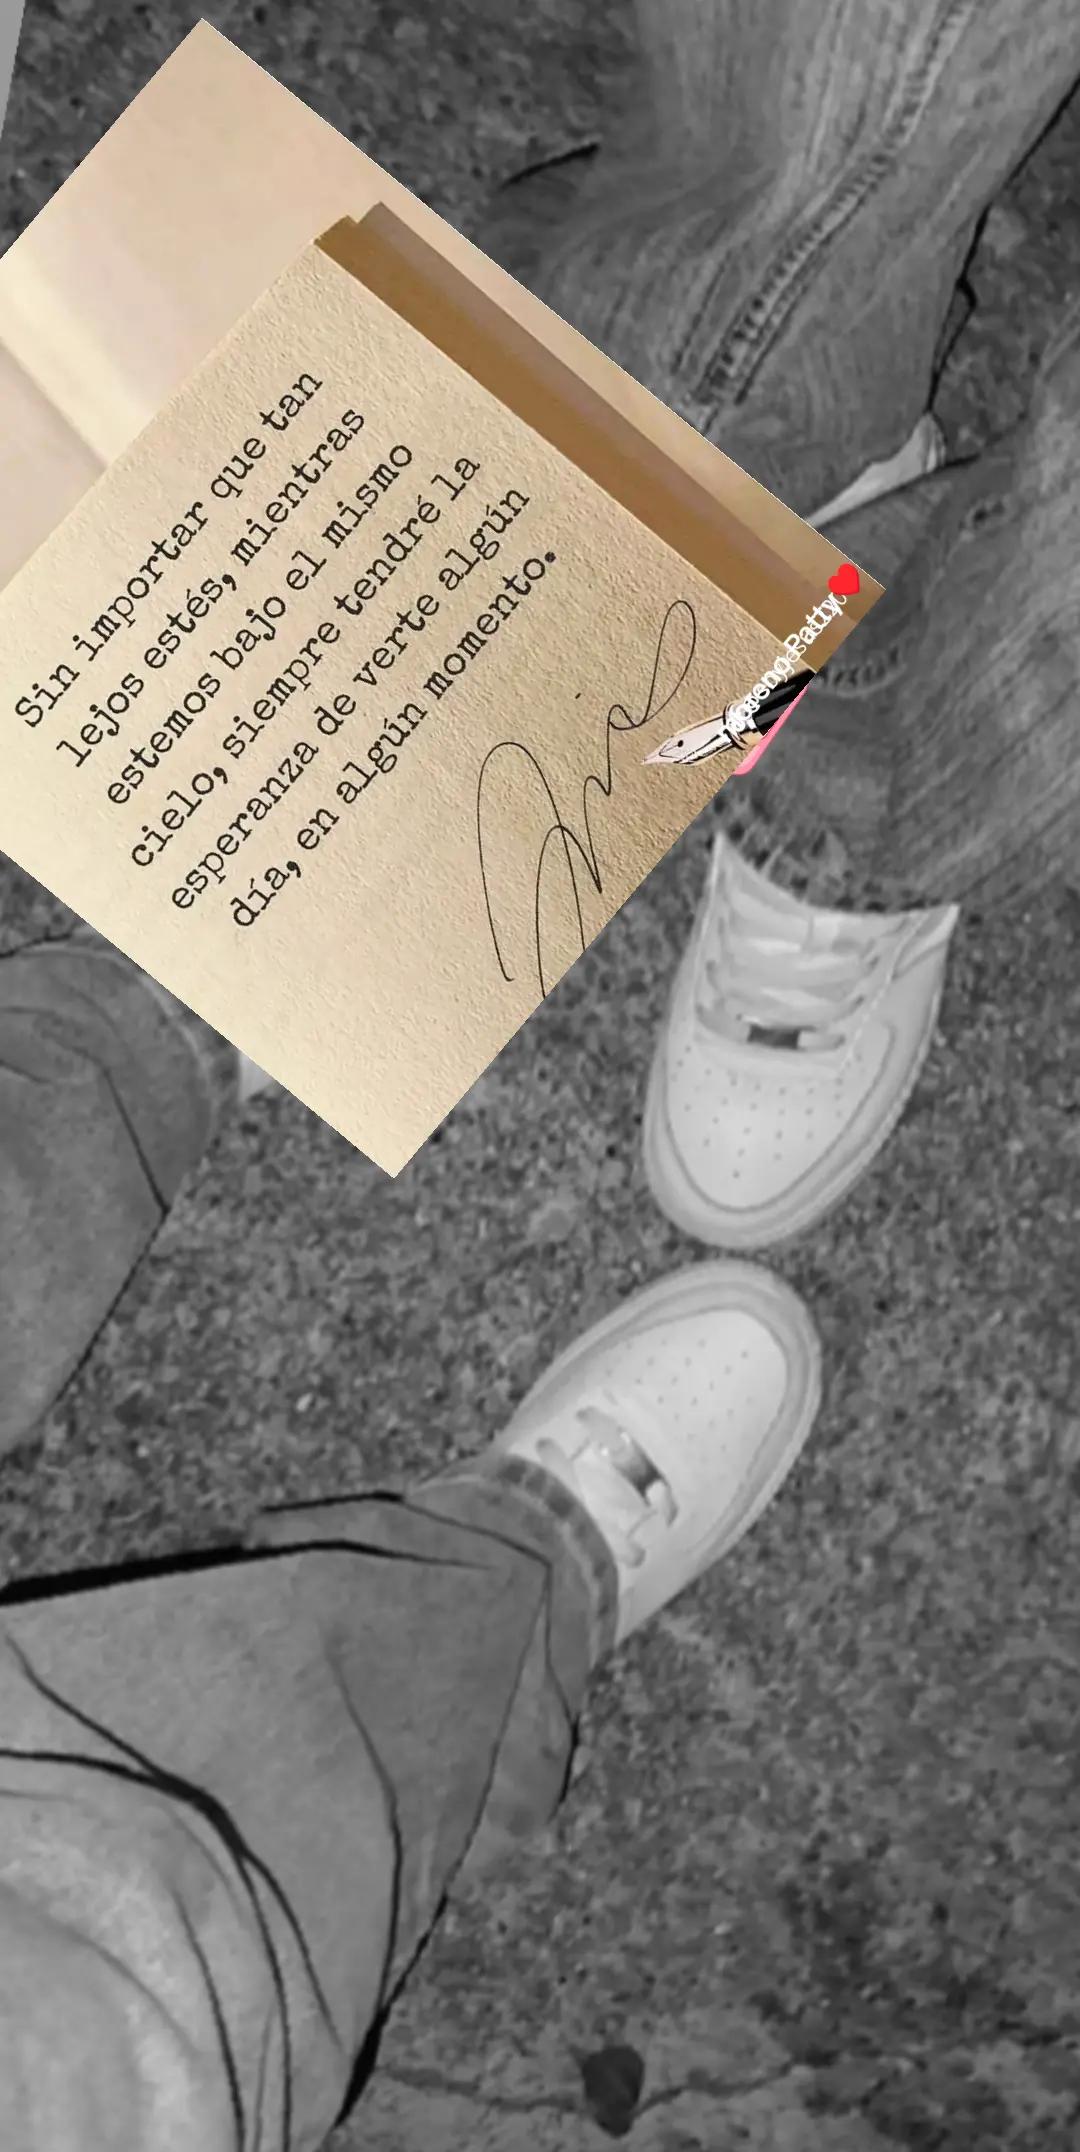 Sin importar que tan
lejos estés, mientras
estemos bajo el mismo
cielo, siempre tendré la
esperanza de verte algún
día, en algún momento.
Patty